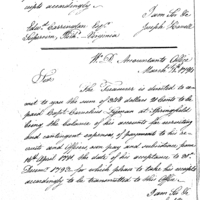 cepts accordingly
I am Sir &c
Joseph Howell
Edwd Carrington Esqr
Supervisor, Richd, Virginia
W. D. Accountants Office
March 1794
Sir
The Treasurer is directed to remit
to you the sum of 328 dollars 21 Cents to be
paid Capt Cornelius Lyman at Springfield
being the balance of his accounts for recruiting
and contingent expences of payments to his re-
cruits and Officers and pay and subsistence, from
16th April 1791 the date of his acceptance to 31st
Decemr 1793 for which please to take his receipts
accordingly to be transmitted to this Office
I am Sir &c